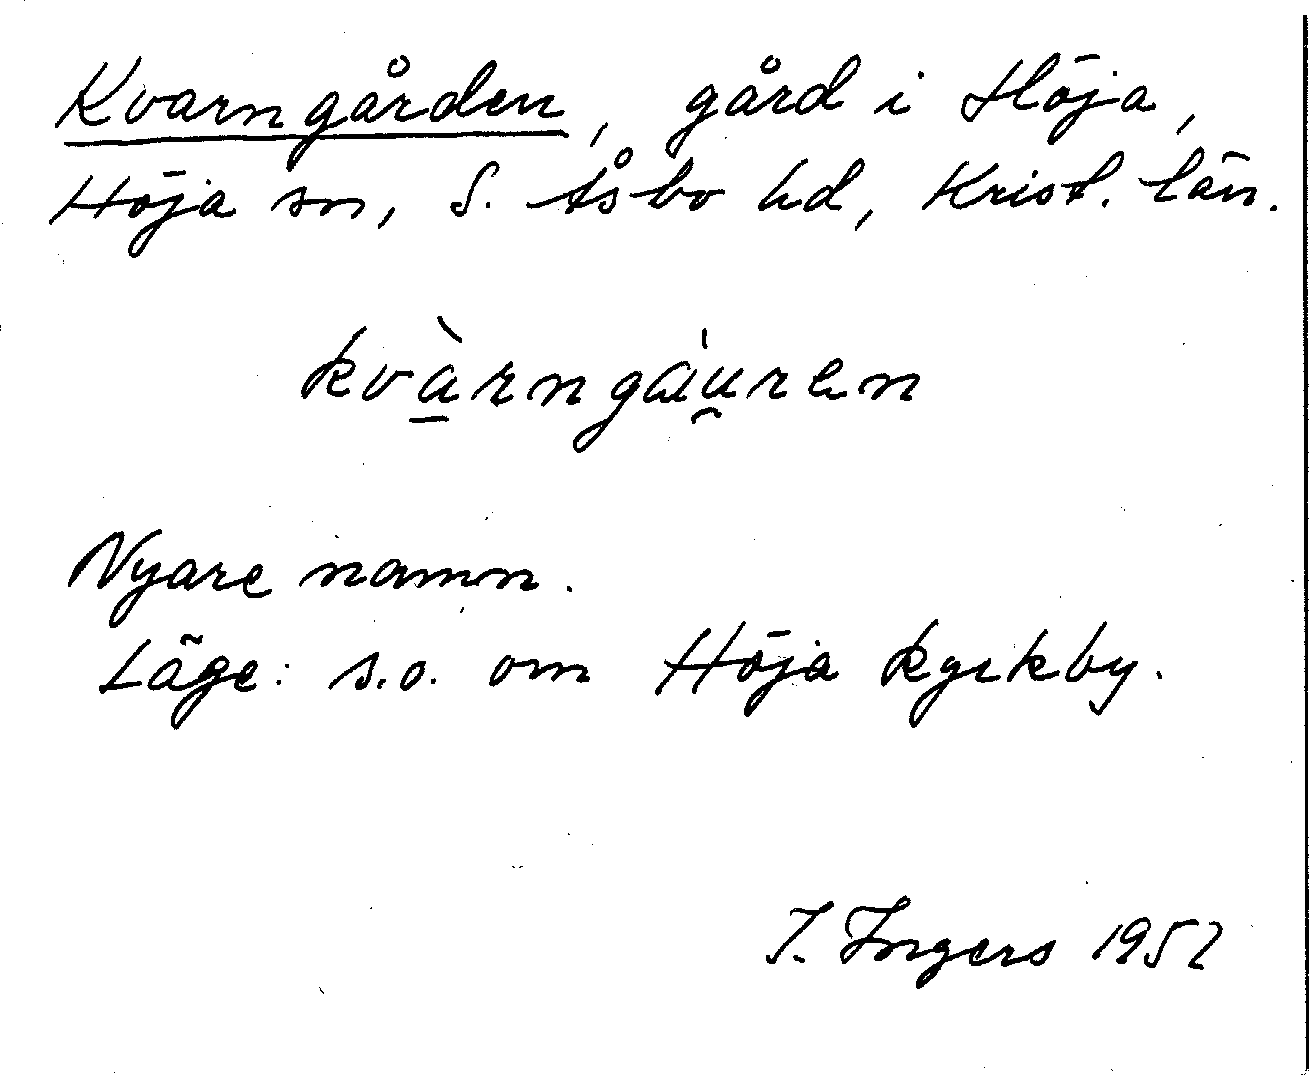 Kvarngården, gård i Höja,
Höja sn, S. Åsbo hd, Krist. län.
kvà̱rngáu̯ren
Nyare namn.
Läge: s.o. om Höja kyrkby.
I. Ingers 1952